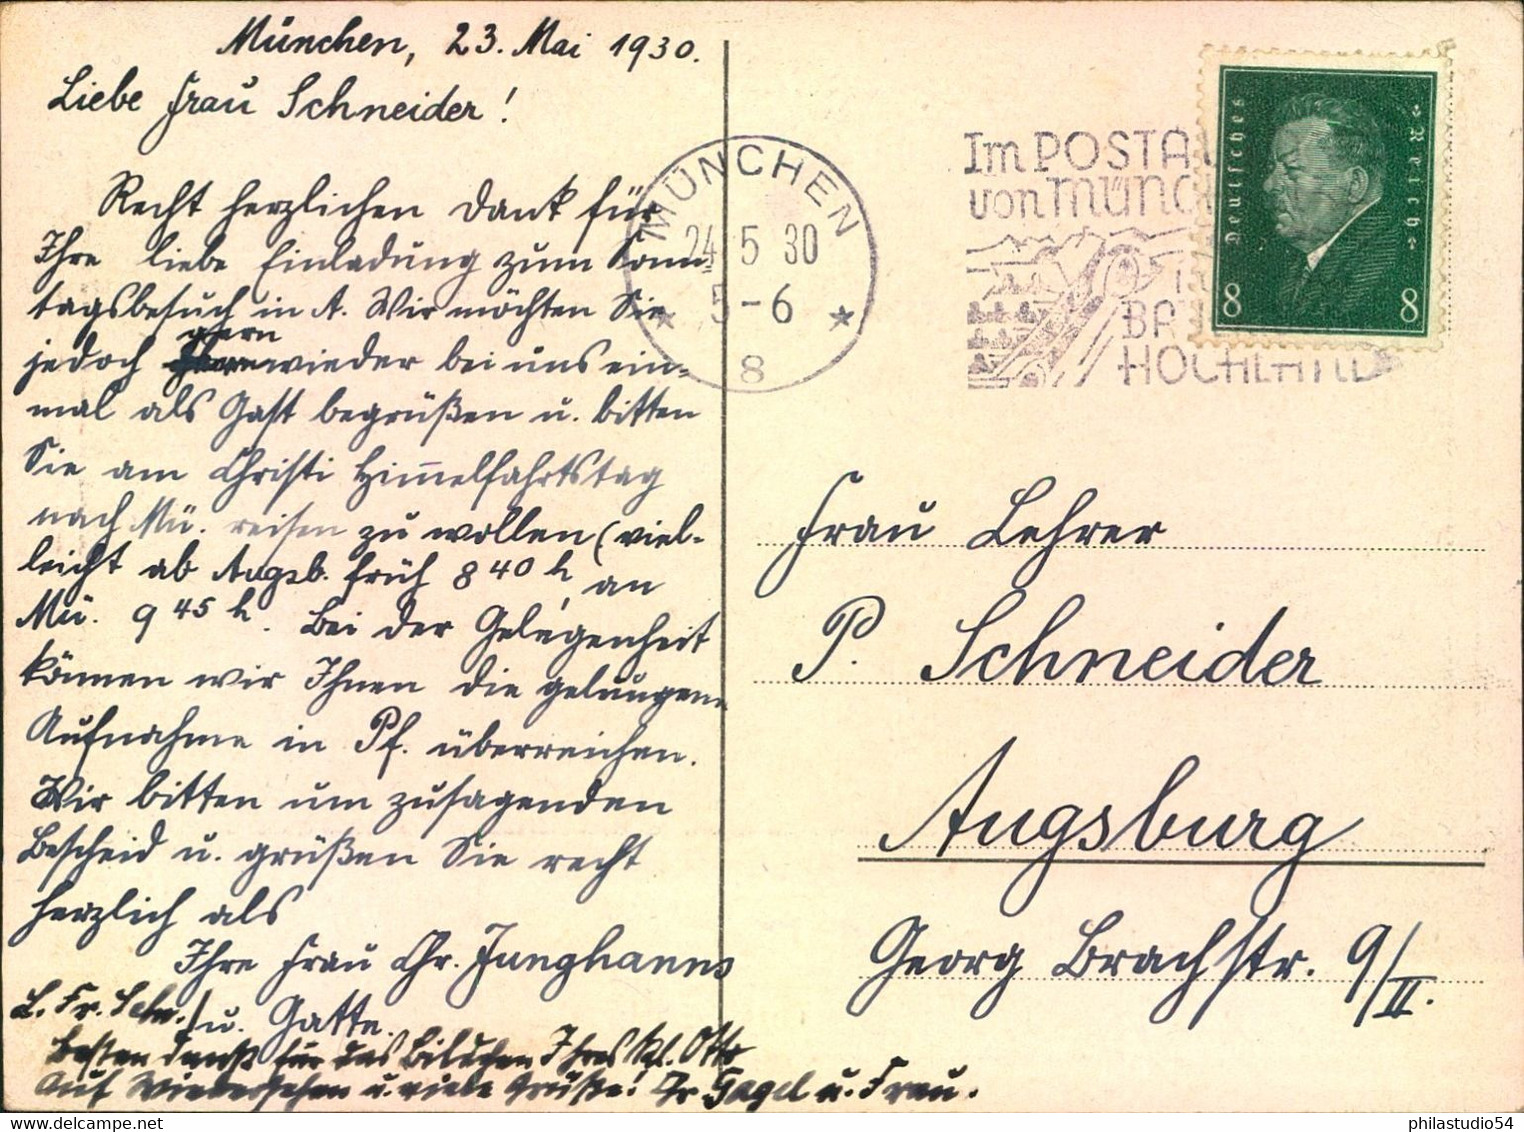 München, 23. Mai 1930.
Liebe Frau Schneider!
Recht herzlichen Dank für
Ihre liebe Einladung zum Sonn-
tagsbesuch in A. Wir möchten Sie
gern
jedoch wieder bei uns ein-
mal als Gast begrüßen u. bitten
Sie am Christi Himmelfahrtstag
nach Mü. reisen zu wollen (viel-
leicht ab Augsb. früh 8 40 h, an
Mü. 9 45 h. Bei der Gelegenheit
können wir Ihnen die gelungene
Aufnahme in Pf. überreichen.
Wir bitten um zusagenden
Bescheid u. grüßen Sie recht
herzlich als
Ihre Frau Chr. Junghanns
u. Gatte.
L. Fr. Schn.!
Besten Dank für das Bildchen Ihres Otto
Auf Wiedersehen u. viele Grüße! Dr. Gagel u. Frau.
MÜNCHEN
24 5 30
5-6
8
Im POSTAU
von MÜNC
INS
BAY
HOCHLAND
Deutsches Reich
8 8
Frau Lehrer
P. Schneider
Augsburg
Georg Brachstr. 9/II.
philastudio54